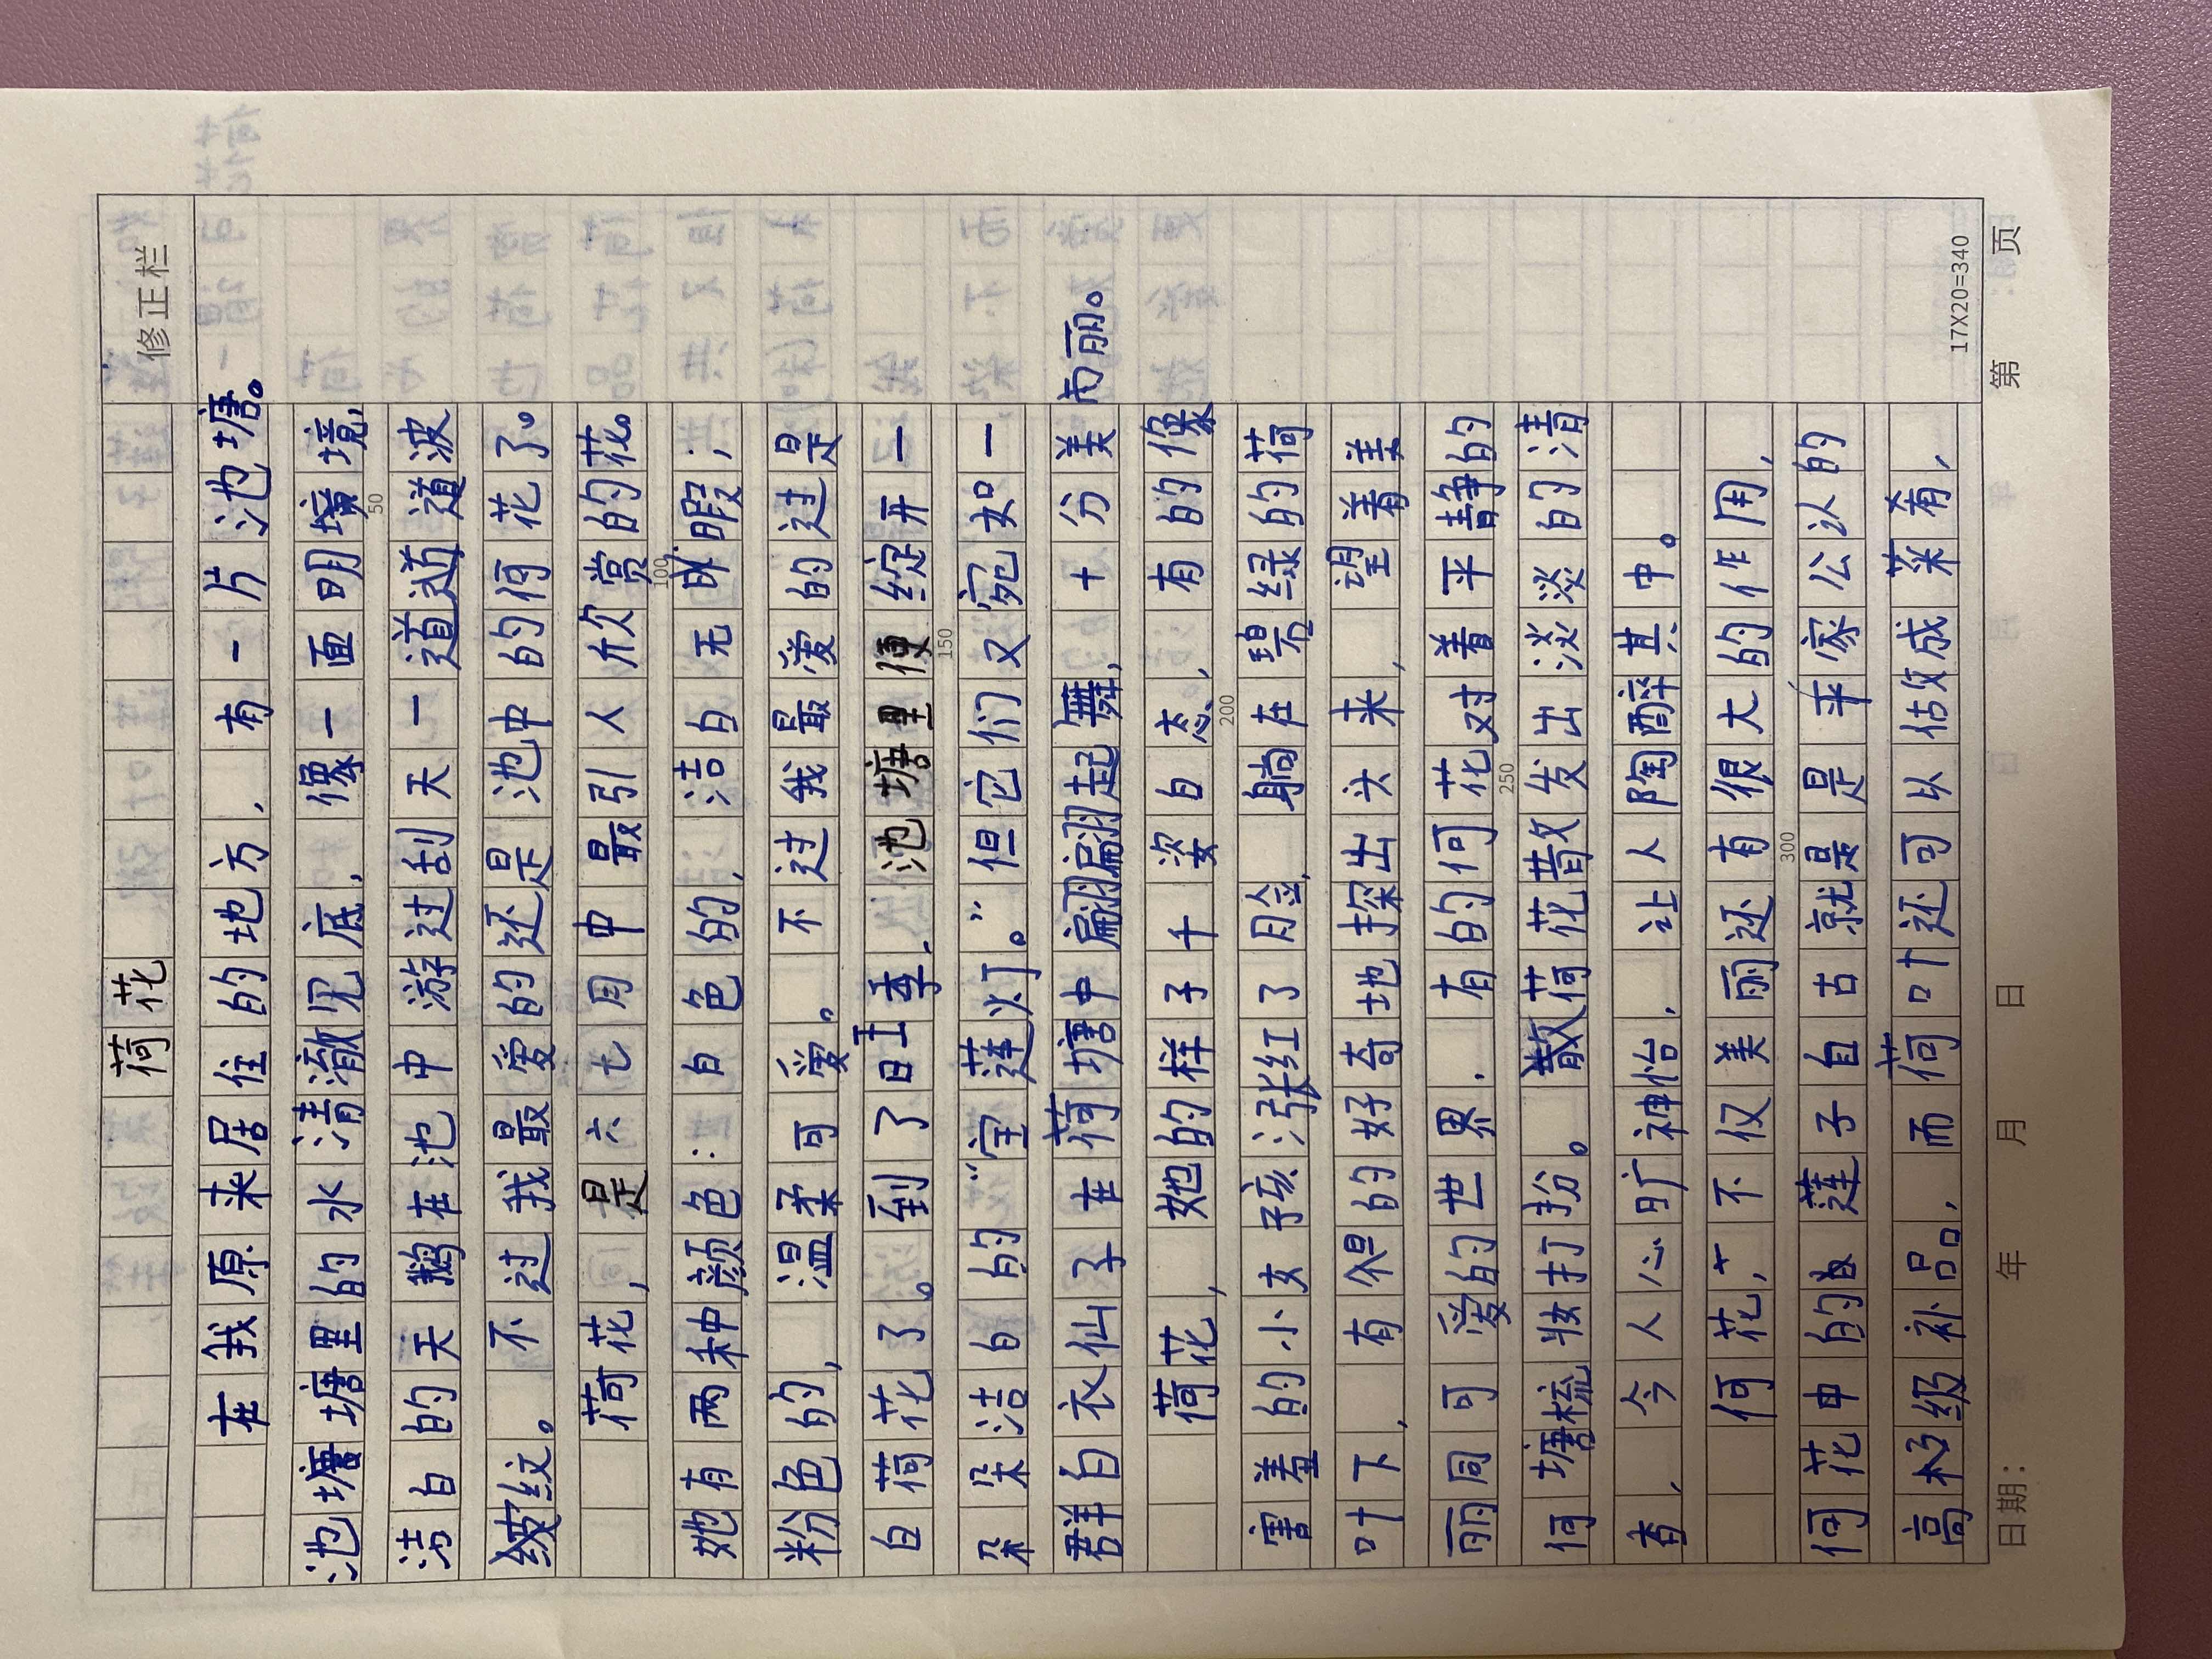 荷花
修正栏
在我原来居住的地方，有一片池塘。
池塘塘里的水清澈见底，像一面明境境，
洁白的天鹅在池中游过刮天一道道道波
纹。不过我最爱的还是池中的何花了。
荷花，是六七月中最引人欣赏的花。
她有两种颜色：白色的，洁白无暇；
粉色的，温柔可爱。不过我最爱的过是
白荷花了。到了日季，池塘里便绽开一
朵朵洁白的“宝莲灯”。但它们又宛如一
群白衣仙子在荷塘中翩翩起舞，十分美
而丽。
荷花，她的样子千姿白态，有的像
害羞的小女孩涨红了脸，躺在碧绿的荷
叶下，有得的好奇地探出头来，望着美
丽同可爱的世界．有的何花对着平静的
何塘梳妆打扮。散荷花散发出淡淡的清
香，令人心旷神怡，让人陶醉其中。
何花，不仅美丽还有很大的作用，
何花中的莲子自古就是是平家公认的
高级补品，而荷叶还可以做成菜肴，
50
100
150
200
250
300
17X20=340
日期： 年 月 日 第 页